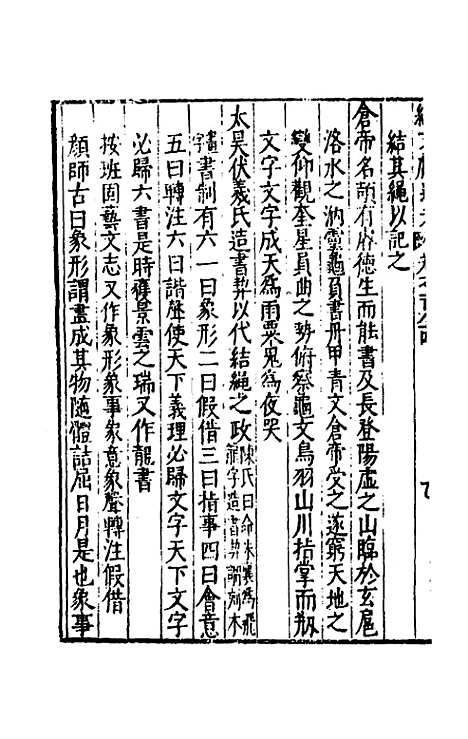 結其繩以記之
倉帝名頡有睿德生而能書及長登陽虛之山臨於玄扈
洛水之汭靈龜負書丹甲青文倉帝受之遂窮天地之
變仰觀奎星員曲之勢俯察龜文鳥羽山川指掌而剏
文字文字成天為雨粟鬼為夜哭
太昊伏羲氏造書契以代結繩之政陳氏曰命朱襄為飛
龍字造書契謂刻木
畫書制有六一曰象形二曰假借三曰指事四曰會意
五曰轉注六曰諧聲使天下義理必歸文字天下文字
必歸六書是時獲景雲之瑞又作龍書
按班固藝文志又作象形象事象意象聲轉注假借
顏師古曰象形謂畫成其物隨體詰屈日月是也象事